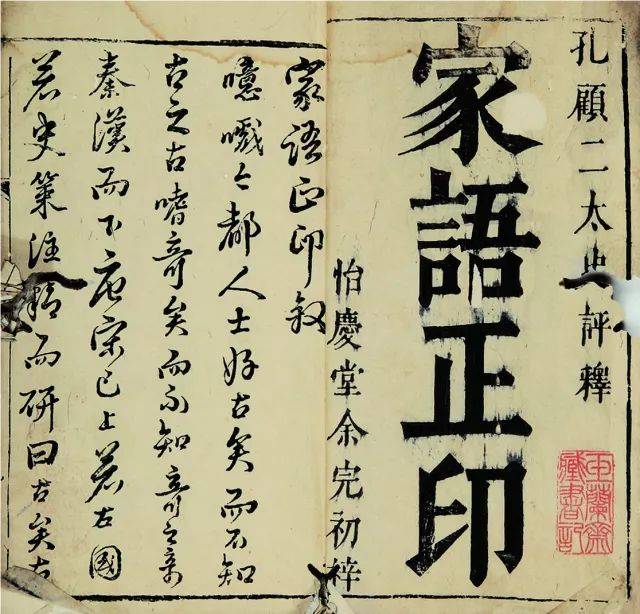 孔顧二太史評釋
家語正印
怡慶堂余完初梓
藏書記
家語正印敘
噫嚱今都人士好古矣而不知
古之古嗜奇矣而不知奇之奇
秦漢而下唐宋已上若左國
若史策注精而研曰古矣古